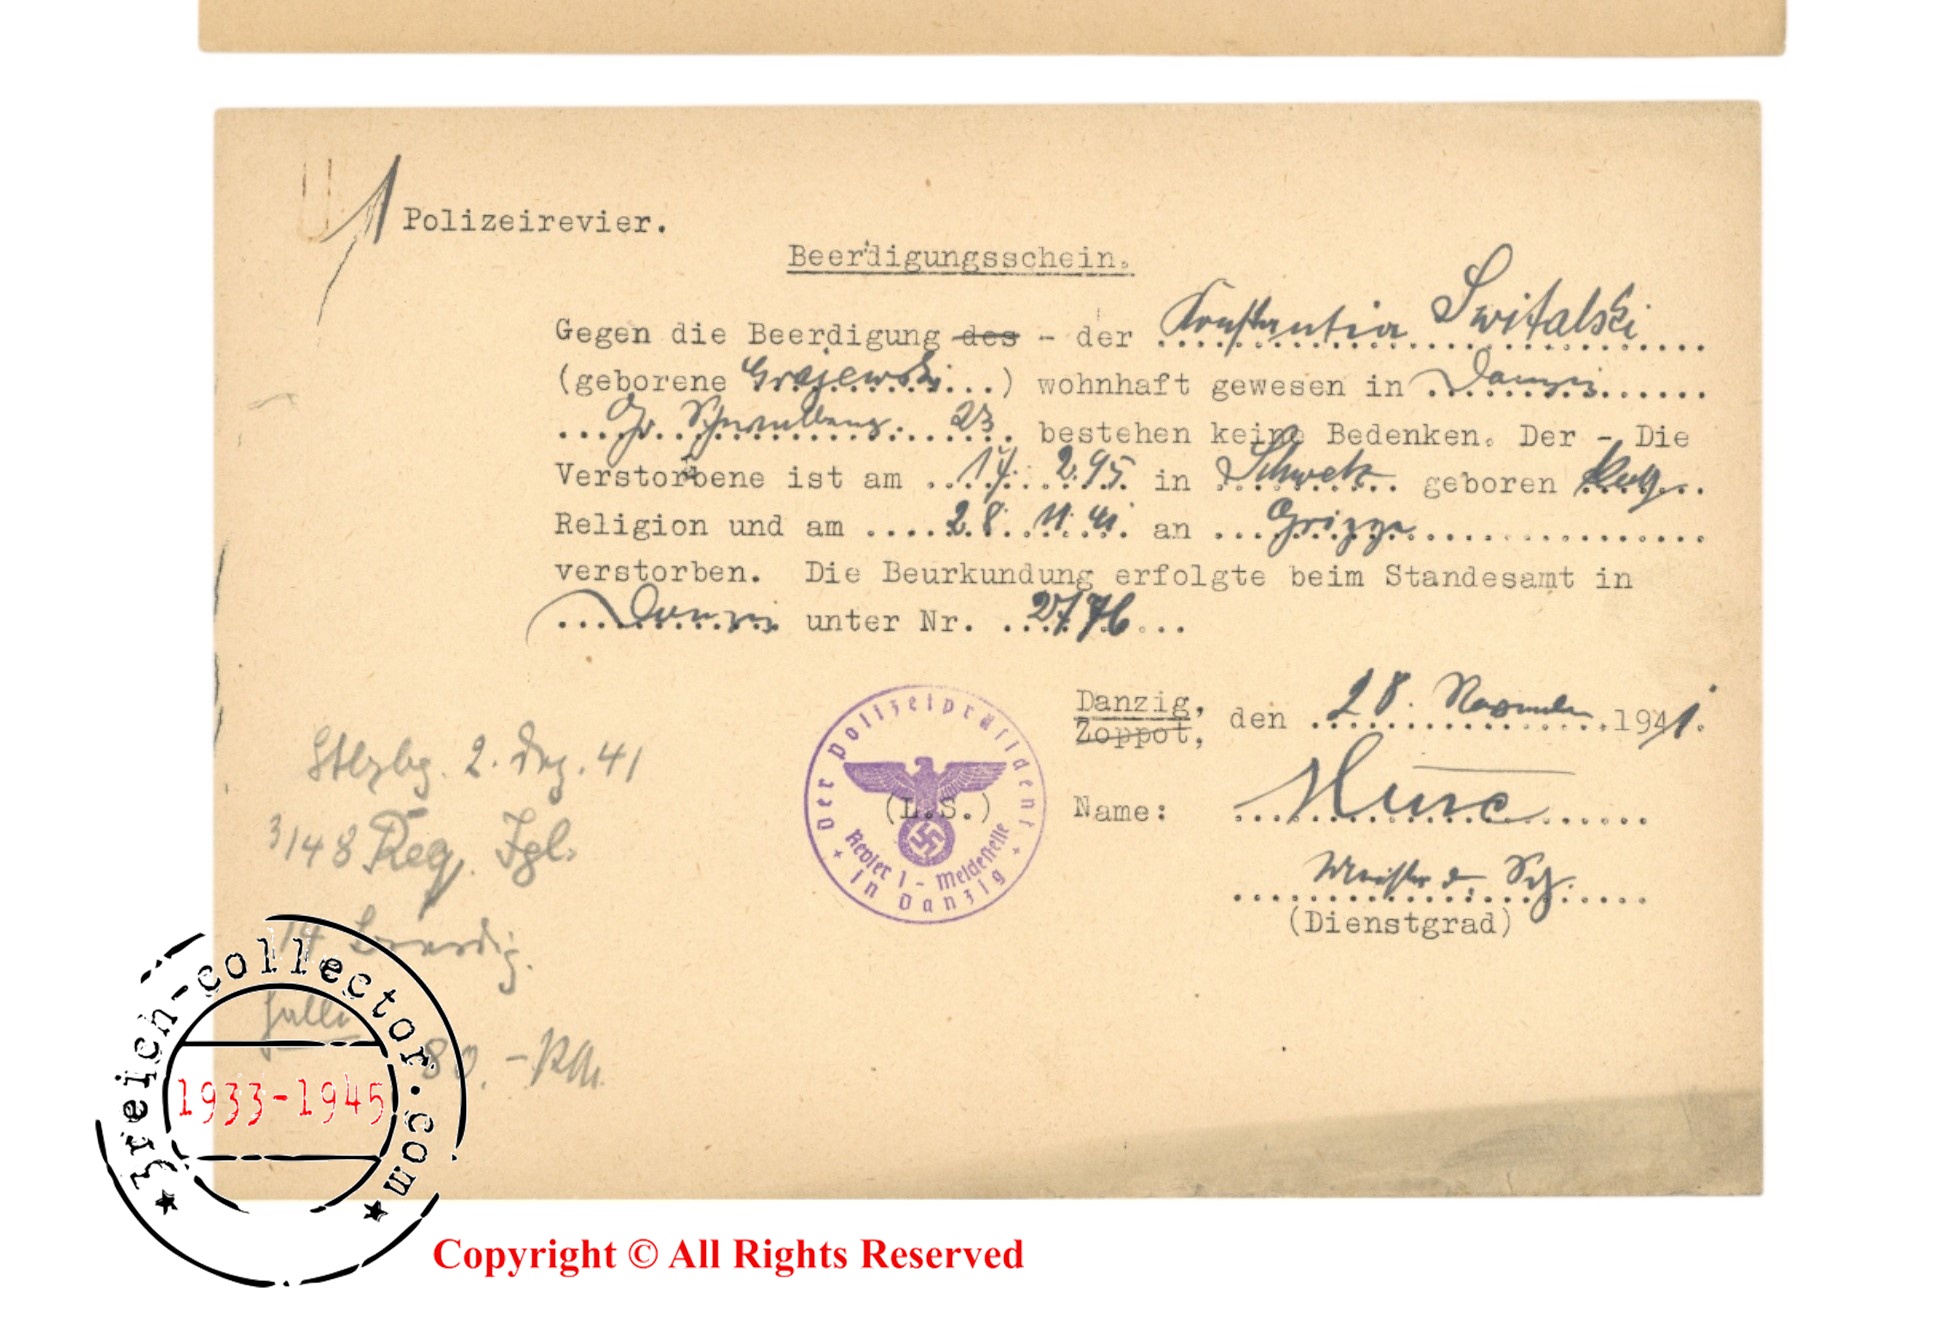 1 Polizeirevier.
Beerdigungsschein.
Gegen die Beerdigung des - der Konstantia Switalski
(geborene Grajewski...) wohnhaft gewesen in Danzig
Gr. Schwalbeng. 23. bestehen keine Bedenken. Der - Die
Verstorbene ist am 17. 2. 95 in Schwetz geboren
Religion und am 28. 11. 41. an Grippe
verstorben. Die Beurkundung erfolgte beim Standesamt in
Danzig unter Nr. 2776
Danzig,
Zoppot,
den 28. November 1941.
Der Polizeipräsident
Revier 1 - Meldestelle
in Danzig
(L.S.)
Name:
Meister d. Sch.
(Dienstgrad)
2. Dez. 41
3148 Reg.
14 Beerdig.
halle
80.- RM.
3reich-collector.com
1933-1945
Copyright © All Rights Reserved